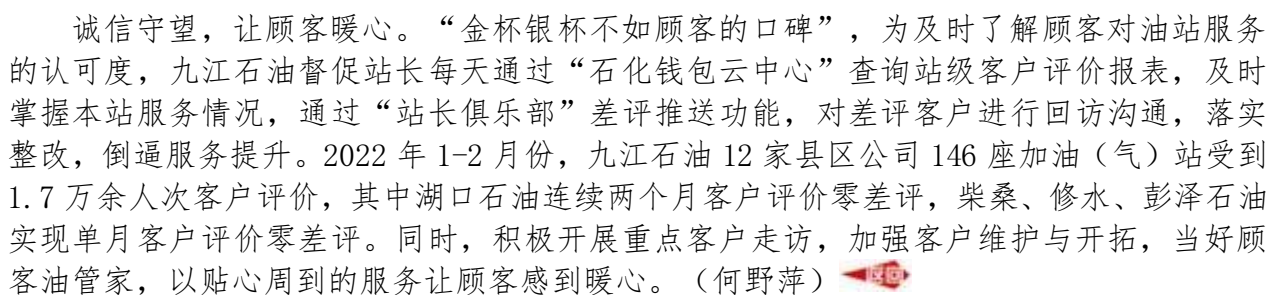 诚信守望，让顾客暖心。“金杯银杯不如顾客的口碑”，为及时了解顾客对油站服务
的认可度，九江石油督促站长每天通过“石化钱包云中心”查询站级客户评价报表，及时
掌握本站服务情况，通过“站长俱乐部”差评推送功能，对差评客户进行回访沟通，落实
整改，倒逼服务提升。2022 年 1-2 月份，九江石油 12 家县区公司 146 座加油（气）站受到
1.7 万余人次客户评价，其中湖口石油连续两个月客户评价零差评，柴桑、修水、彭泽石油
实现单月客户评价零差评。同时，积极开展重点客户走访，加强客户维护与开拓，当好顾
客油管家，以贴心周到的服务让顾客感到暖心。（何野萍）